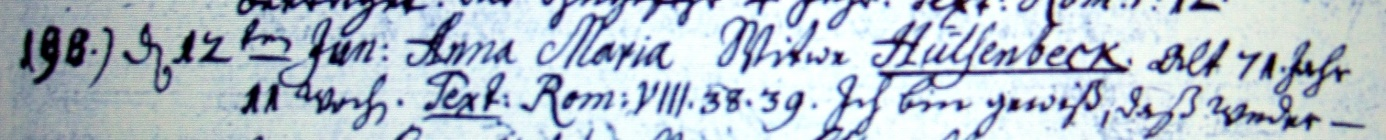 Text: Rom: 1. 12.
198.) d 12 ten Jun: Anna Maria Witwe Hülsenbeck. Alt 71. Jahr
11 Woch. Text: Rom: VIII. 38. 39. Ich bin gewiß, daß weder —